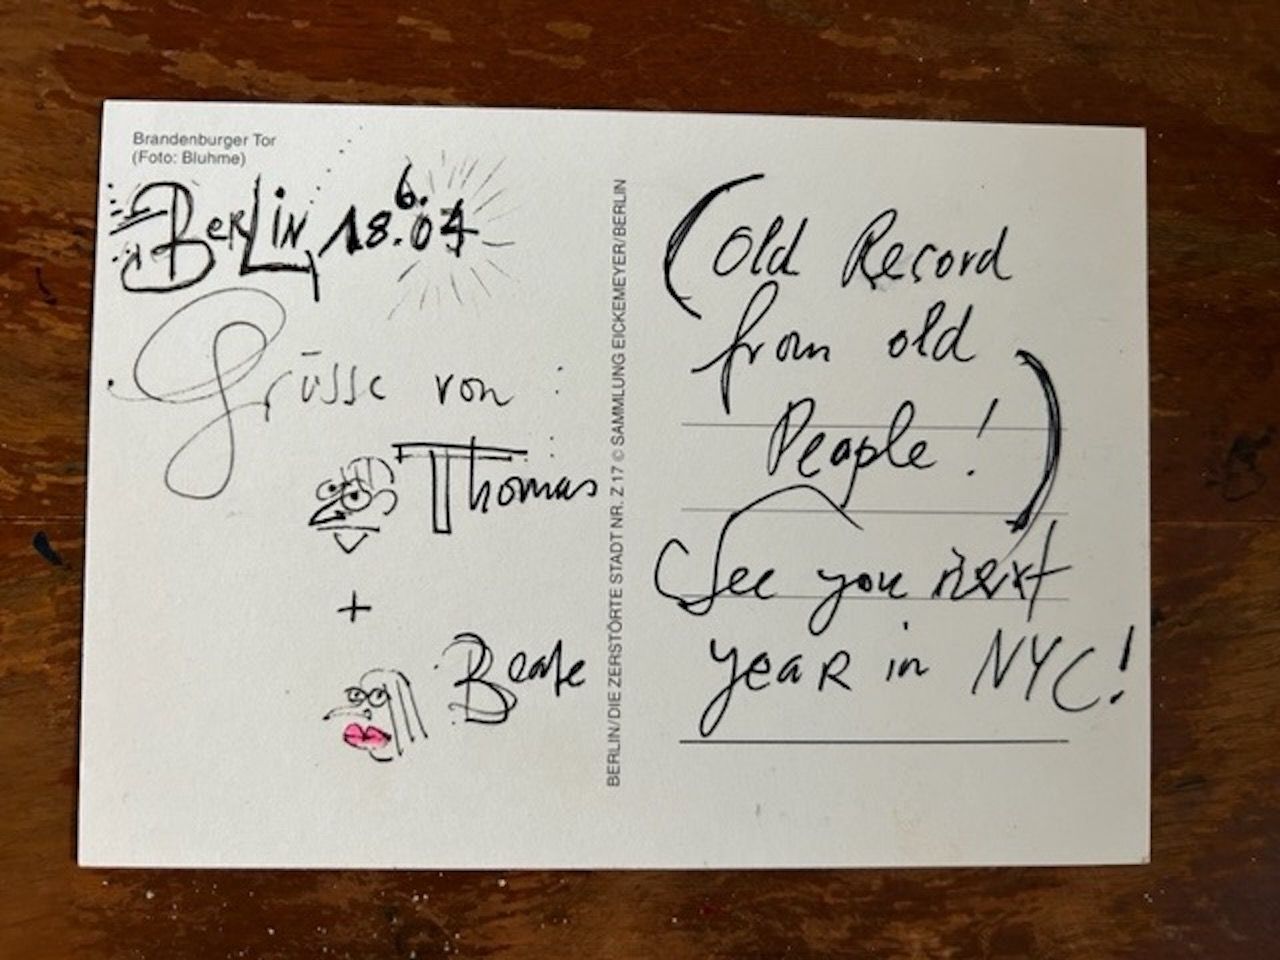 Brandenburger Tor
(Foto: Bluhme)
BERLiN 18.6.04
Grüsse von :
Thomas
+
Beate
BERLIN/DIE ZERSTÖRTE STADT NR. Z 17 © SAMMLUNG EICKEMEYER/BERLIN
(Old Record
from old
People!)
See you next
yeaR in NYC!